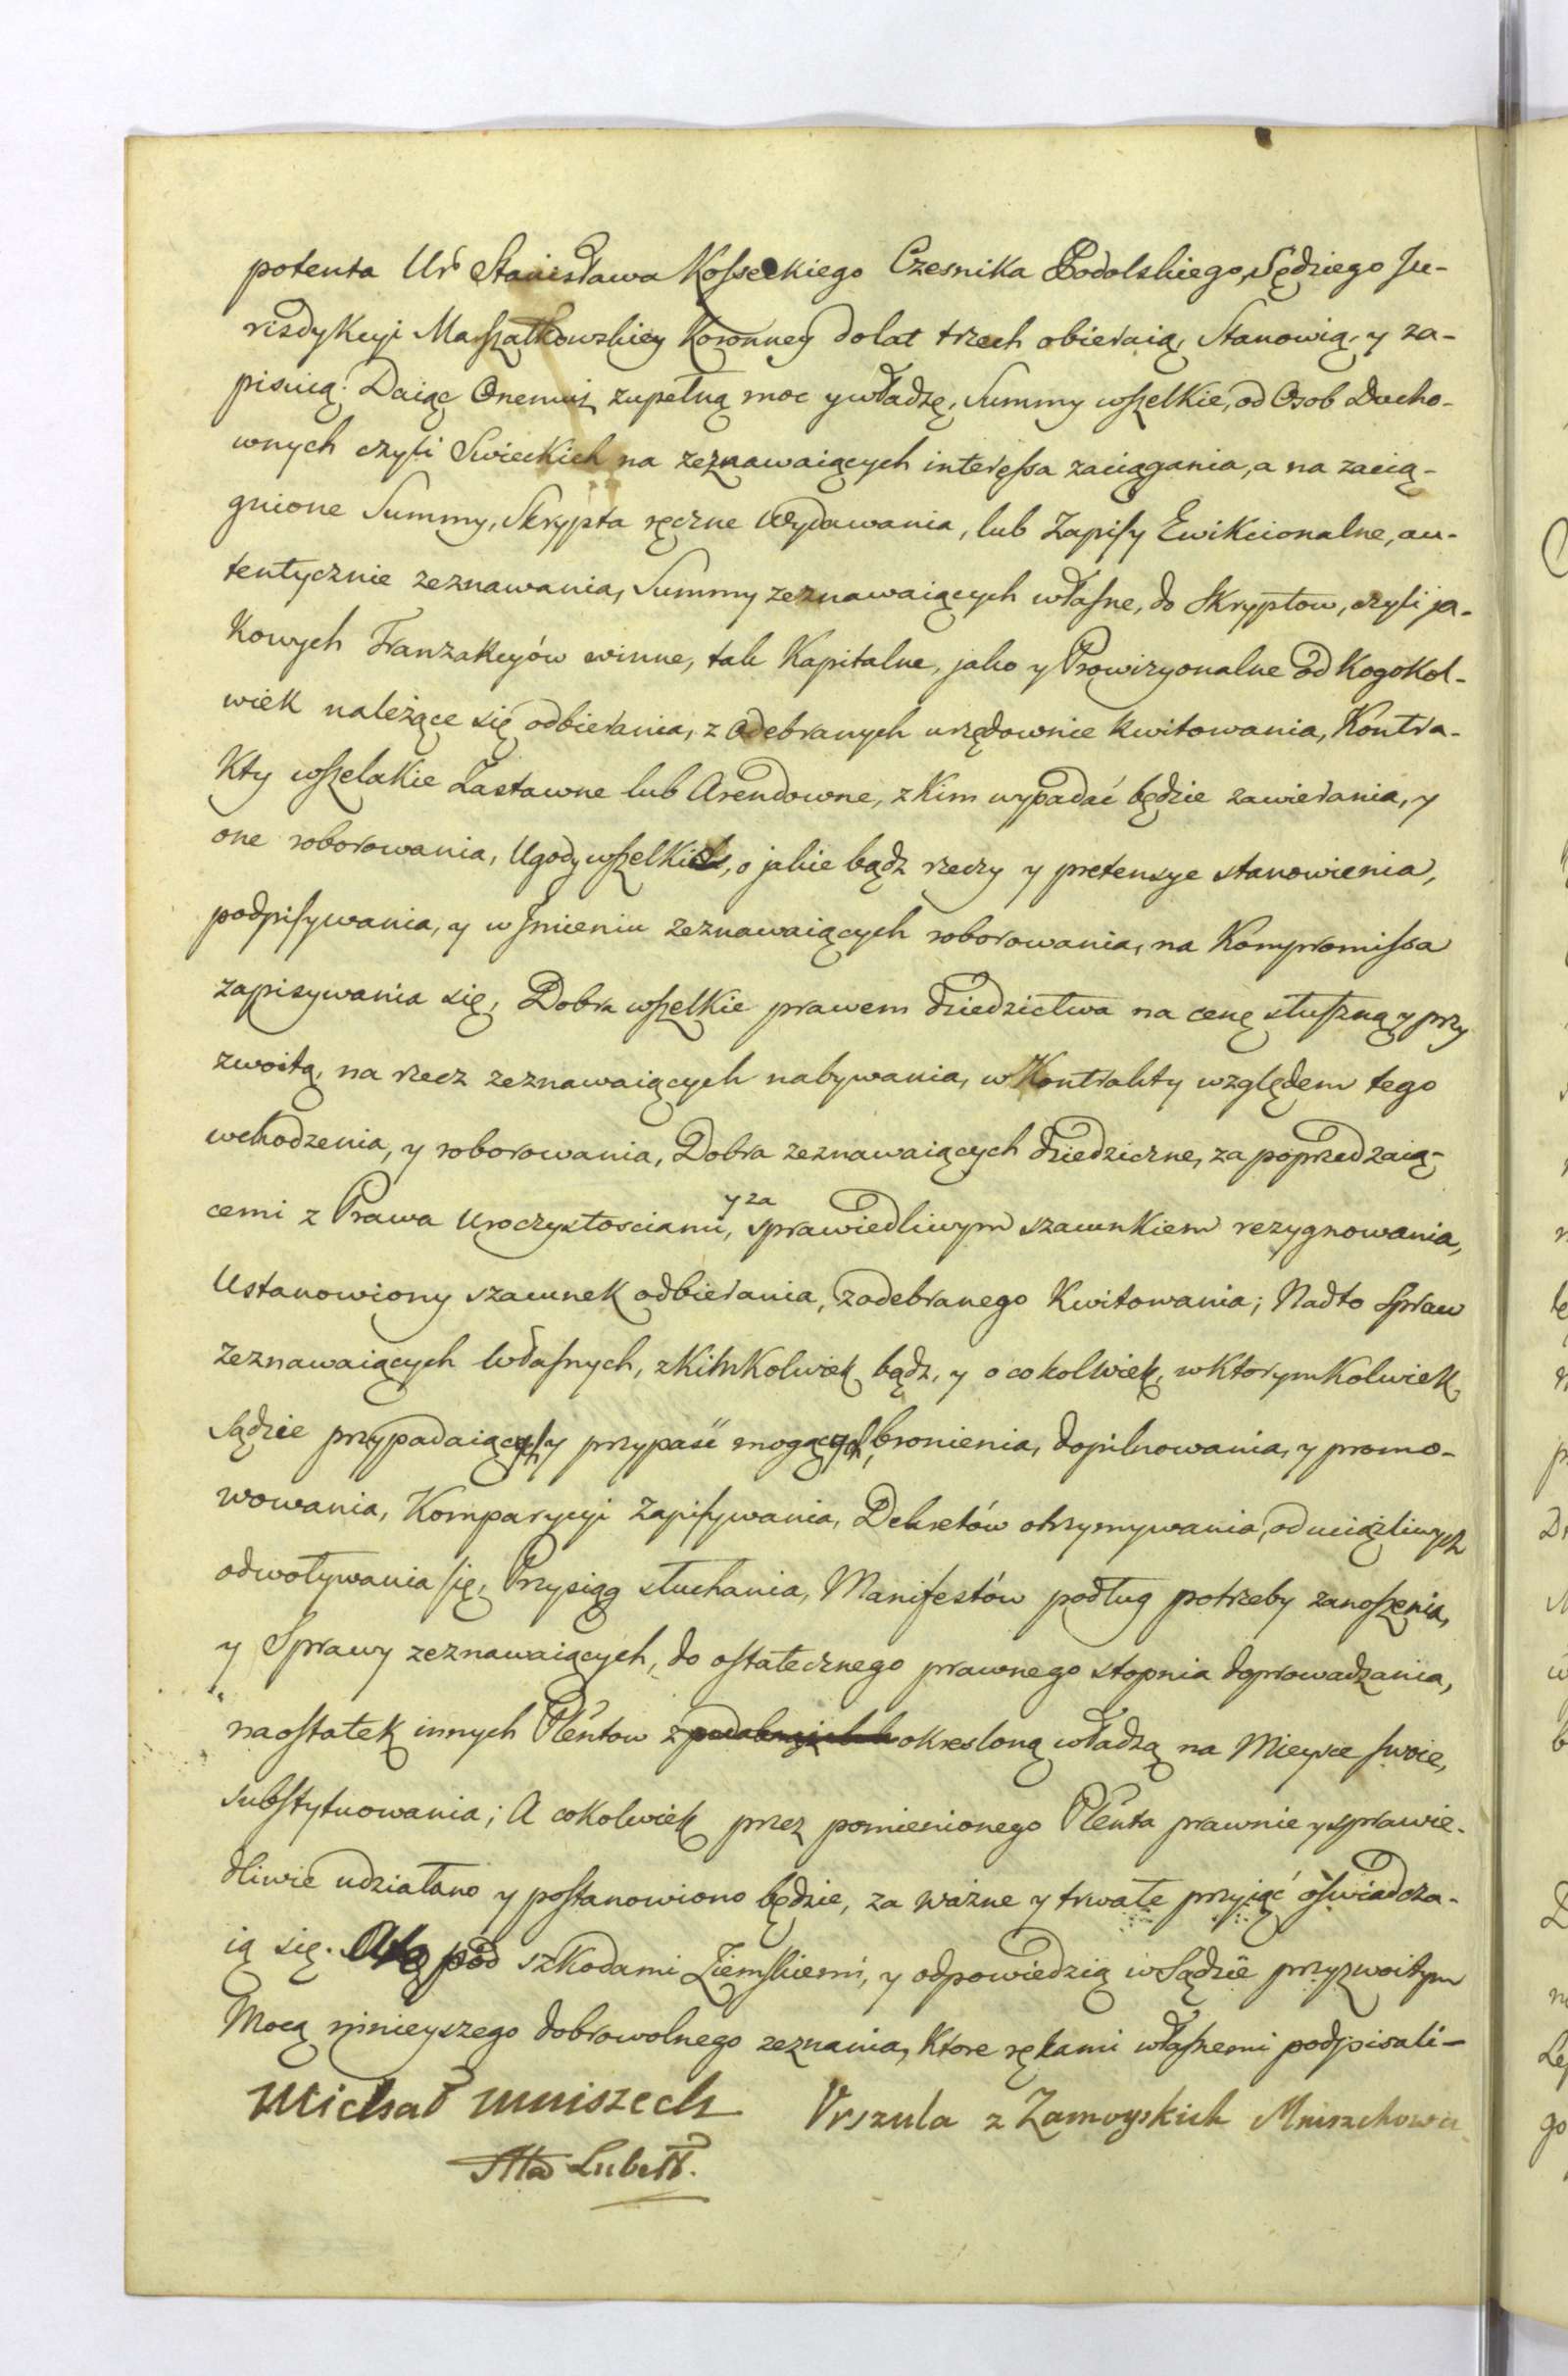 potenta Ur̃ Stanisława Kosseckiego Czesnika Podolskiego, Sędziego Ju-
risdykcyi Marszałkowskiey Koronney do lat trzech obieraią, Stanowią, y za-
pisuią. Daiąc Onemuż zupełną moc y władzę, Summy wszelkie, od Osob Ducho-
wnych czyli Swieckich na zeznawaiących interessa zaciągania, a na zacią-
gnione Summy, Skrypta ręczne wydawania, lub Zapisy Ewikcionalne, au-
tentycznie zeznawania, Summy zeznawaiących własne, do Skryptow, czyli ja-
kowych Tranzakcyów winne, tak Kapitalne, jako y Prowizyonalne od kogokol-
wiek należące się odbierania, z odebranych urzędownie kwitowania, Kontra-
kty wszelakie Zastawne lub Arendowne, z kim wypadać będzie zawierania, y
one roborowania, Ugody wszelkie, o jakie bądz rzeczy y pretensye stanowienia,
podpisywania, y w Jmieniu zeznawaiących roborowania, na Kompromissa
zapisywania się, Dobra wszelkie prawem dziedzictwa na cenę słuszną y przy
zwoitą, na rzecz zeznawaiących nabywania, w Kontrakty względem tego
wchodzenia, y roborowania, Dobra zeznawaiących dziedziczne, za poprzedzaią-
cemi z Prawa Uroczystosciami, y za sprawiedliwym szacunkiem rezygnowania,
Ustanowiony szacunek odbierania, z odebranego Kwitowania; Nadto Spraw
zeznawaiących własnych, z kimkolwiek bądz, y o cokolwiek, w ktorymkolwiek
Sądzie przypadaiących y przypaść mogących, bronienia, dopilnowania, y promo-
wowania, Komparycyi Zapisywania, Dekretów otrzymywania, od uciążliwych
odwoływania się, Przysiąg słuchania, Manifestów podług potrzeby zanoszenia,
y Sprawy zeznawaiących, do ostatecznego prawnego stopnia doprowadzania,
naostatek innych Pleñtow z okresloną władzą na Mieysce swoie,
substytuowania; A cokolwiek przez pomienionego Pleñta prawnie y sprawie-
dliwie udziałano y postanowiono będzie, za ważne y trwałe przyiąć oświadcza-
ią się. A to pod szkodami Ziemskiemi, y odpowiedzią w Sądzie przyzwoitym
Mocą ninieyszego dobrowolnego zeznania, ktore rękami własnemi podpisali –
Michał Mniszech Vrszula z Zamoyskich Mniszchowa